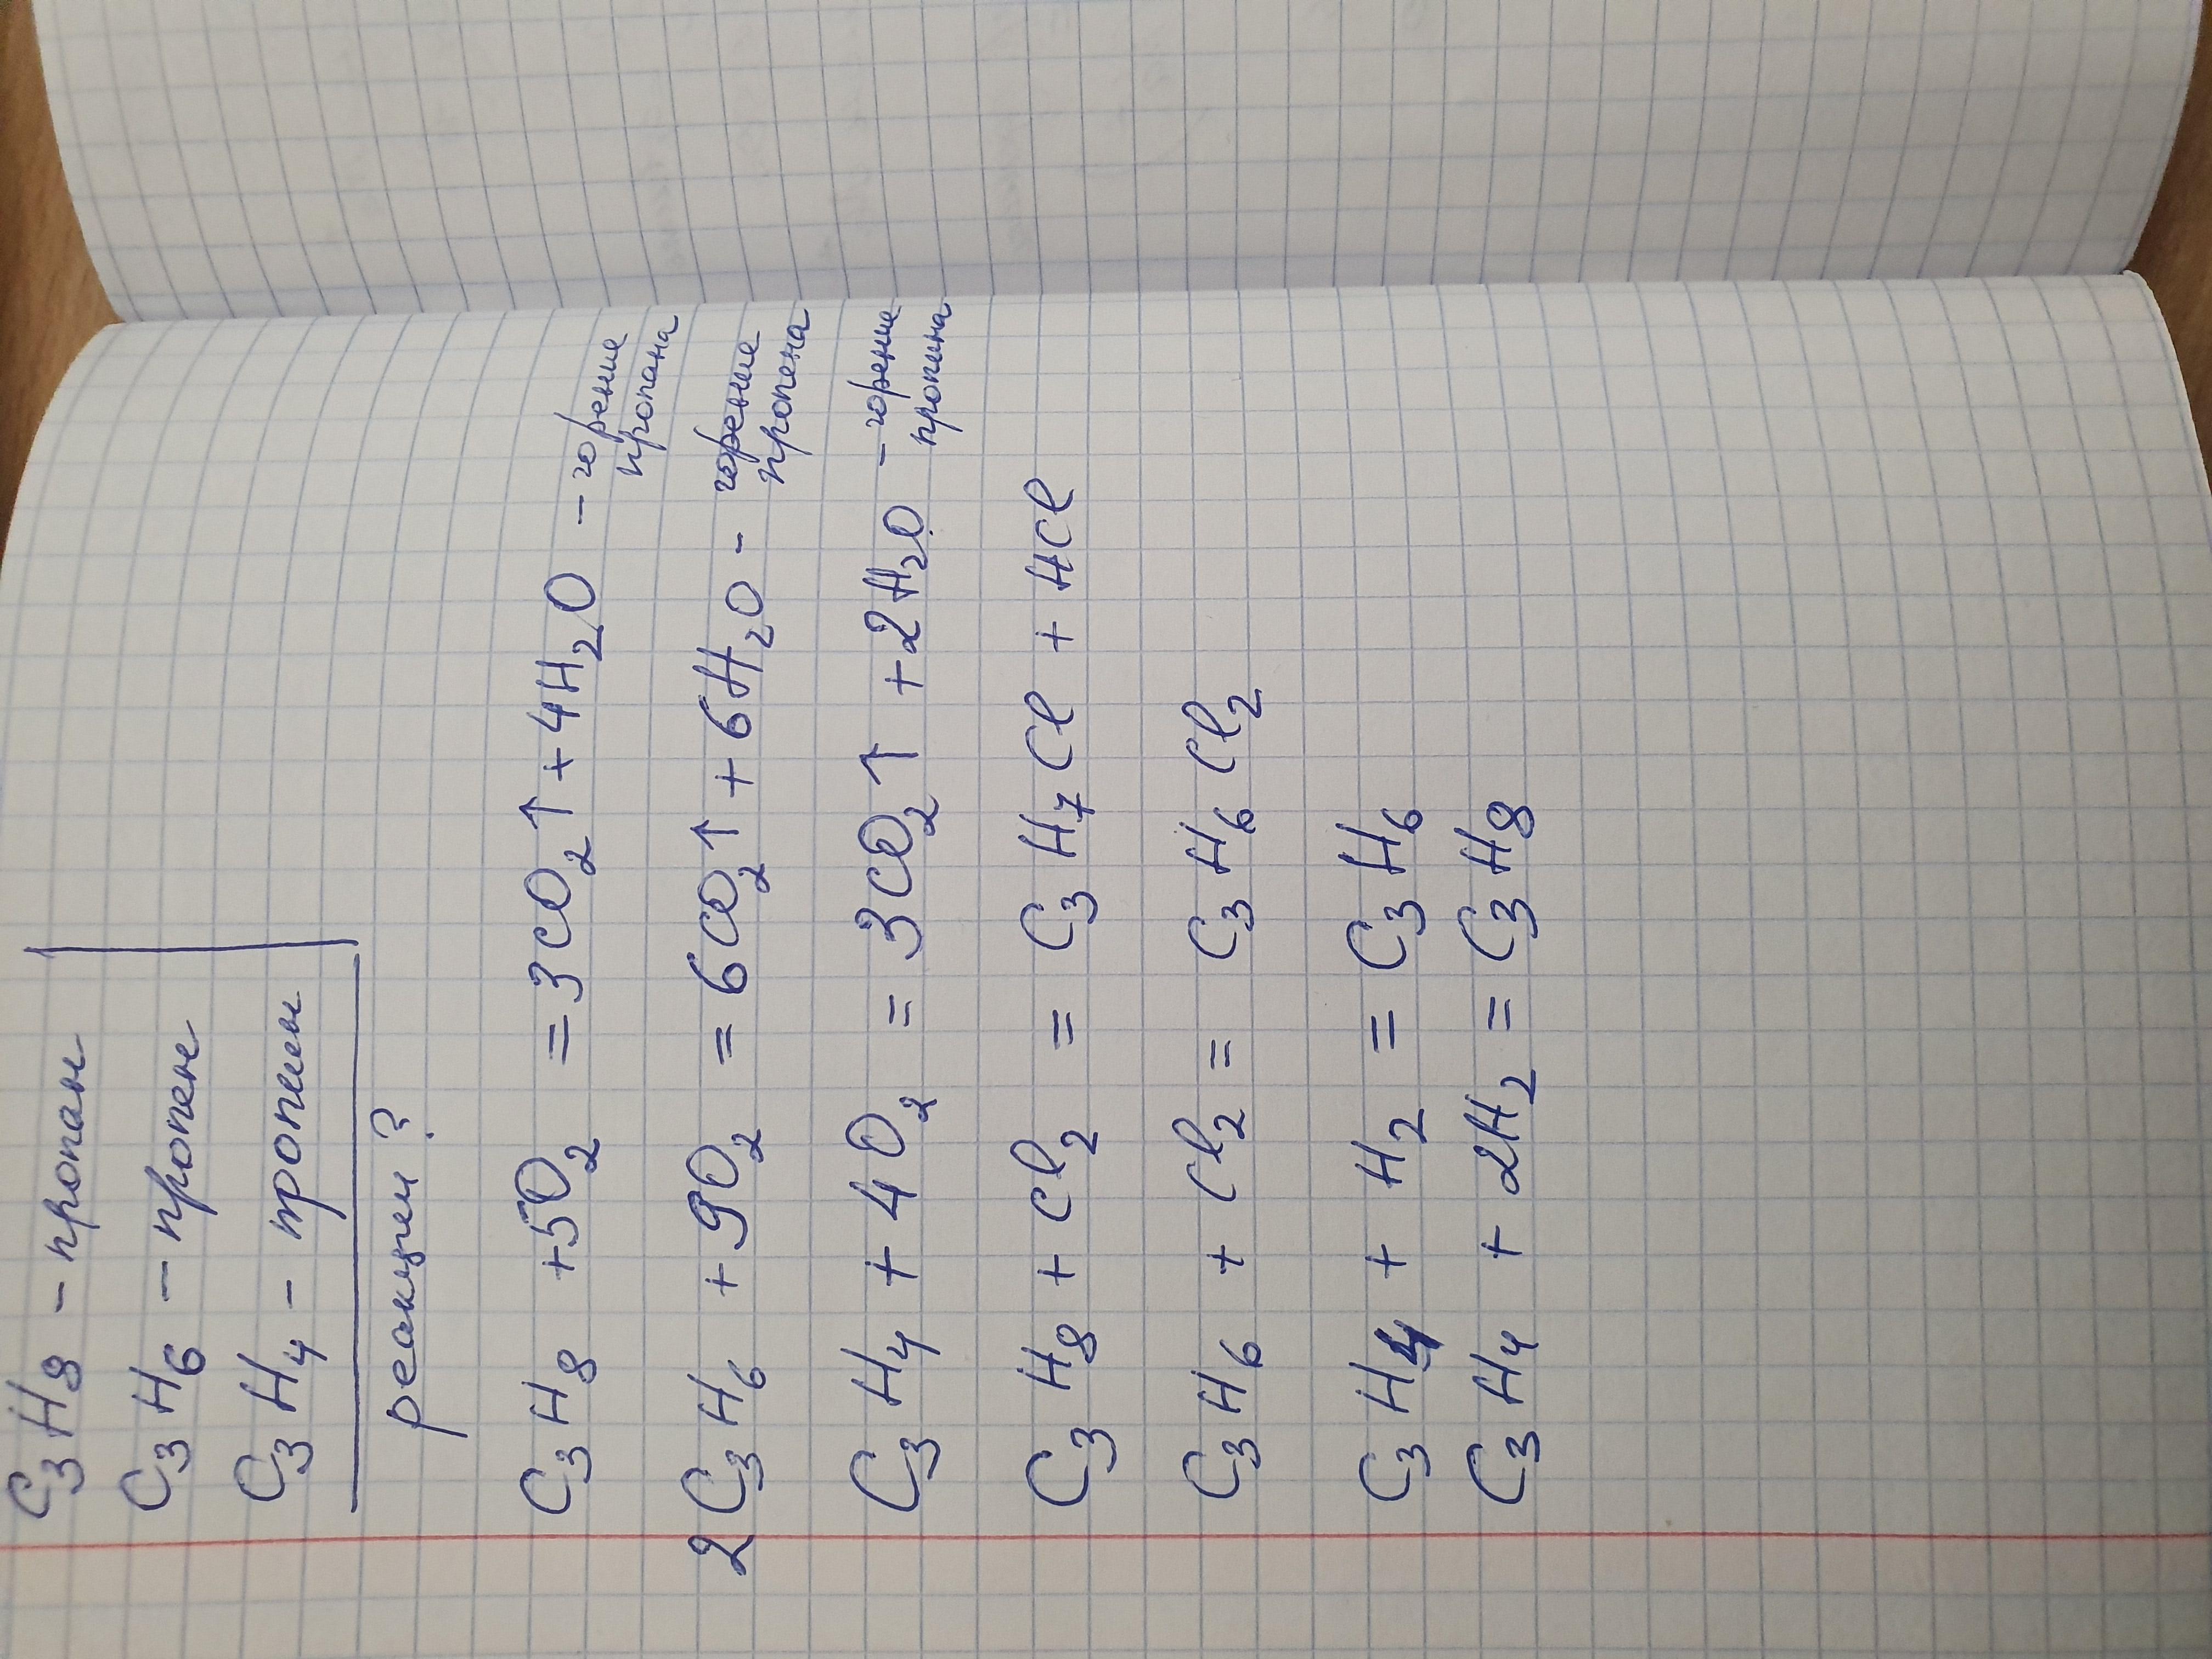 C₃H₈ – пропан
C₃H₆ – пропен
C₃H₄ – пропин
реакции ?
C₃H₈ + 5O₂ = 3CO₂↑ + 4H₂O – горение пропана
2C₃H₆ + 9O₂ = 6CO₂↑ + 6H₂O – горение пропена
C₃H₄ + 4O₂ = 3CO₂↑ + 2H₂O – горение пропина
C₃H₈ + Cl₂ = C₃H₇Cl + HCl
C₃H₆ + Cl₂ = C₃H₆Cl₂
C₃H₄ + H₂ = C₃H₆
C₃H₄ + 2H₂ = C₃H₈